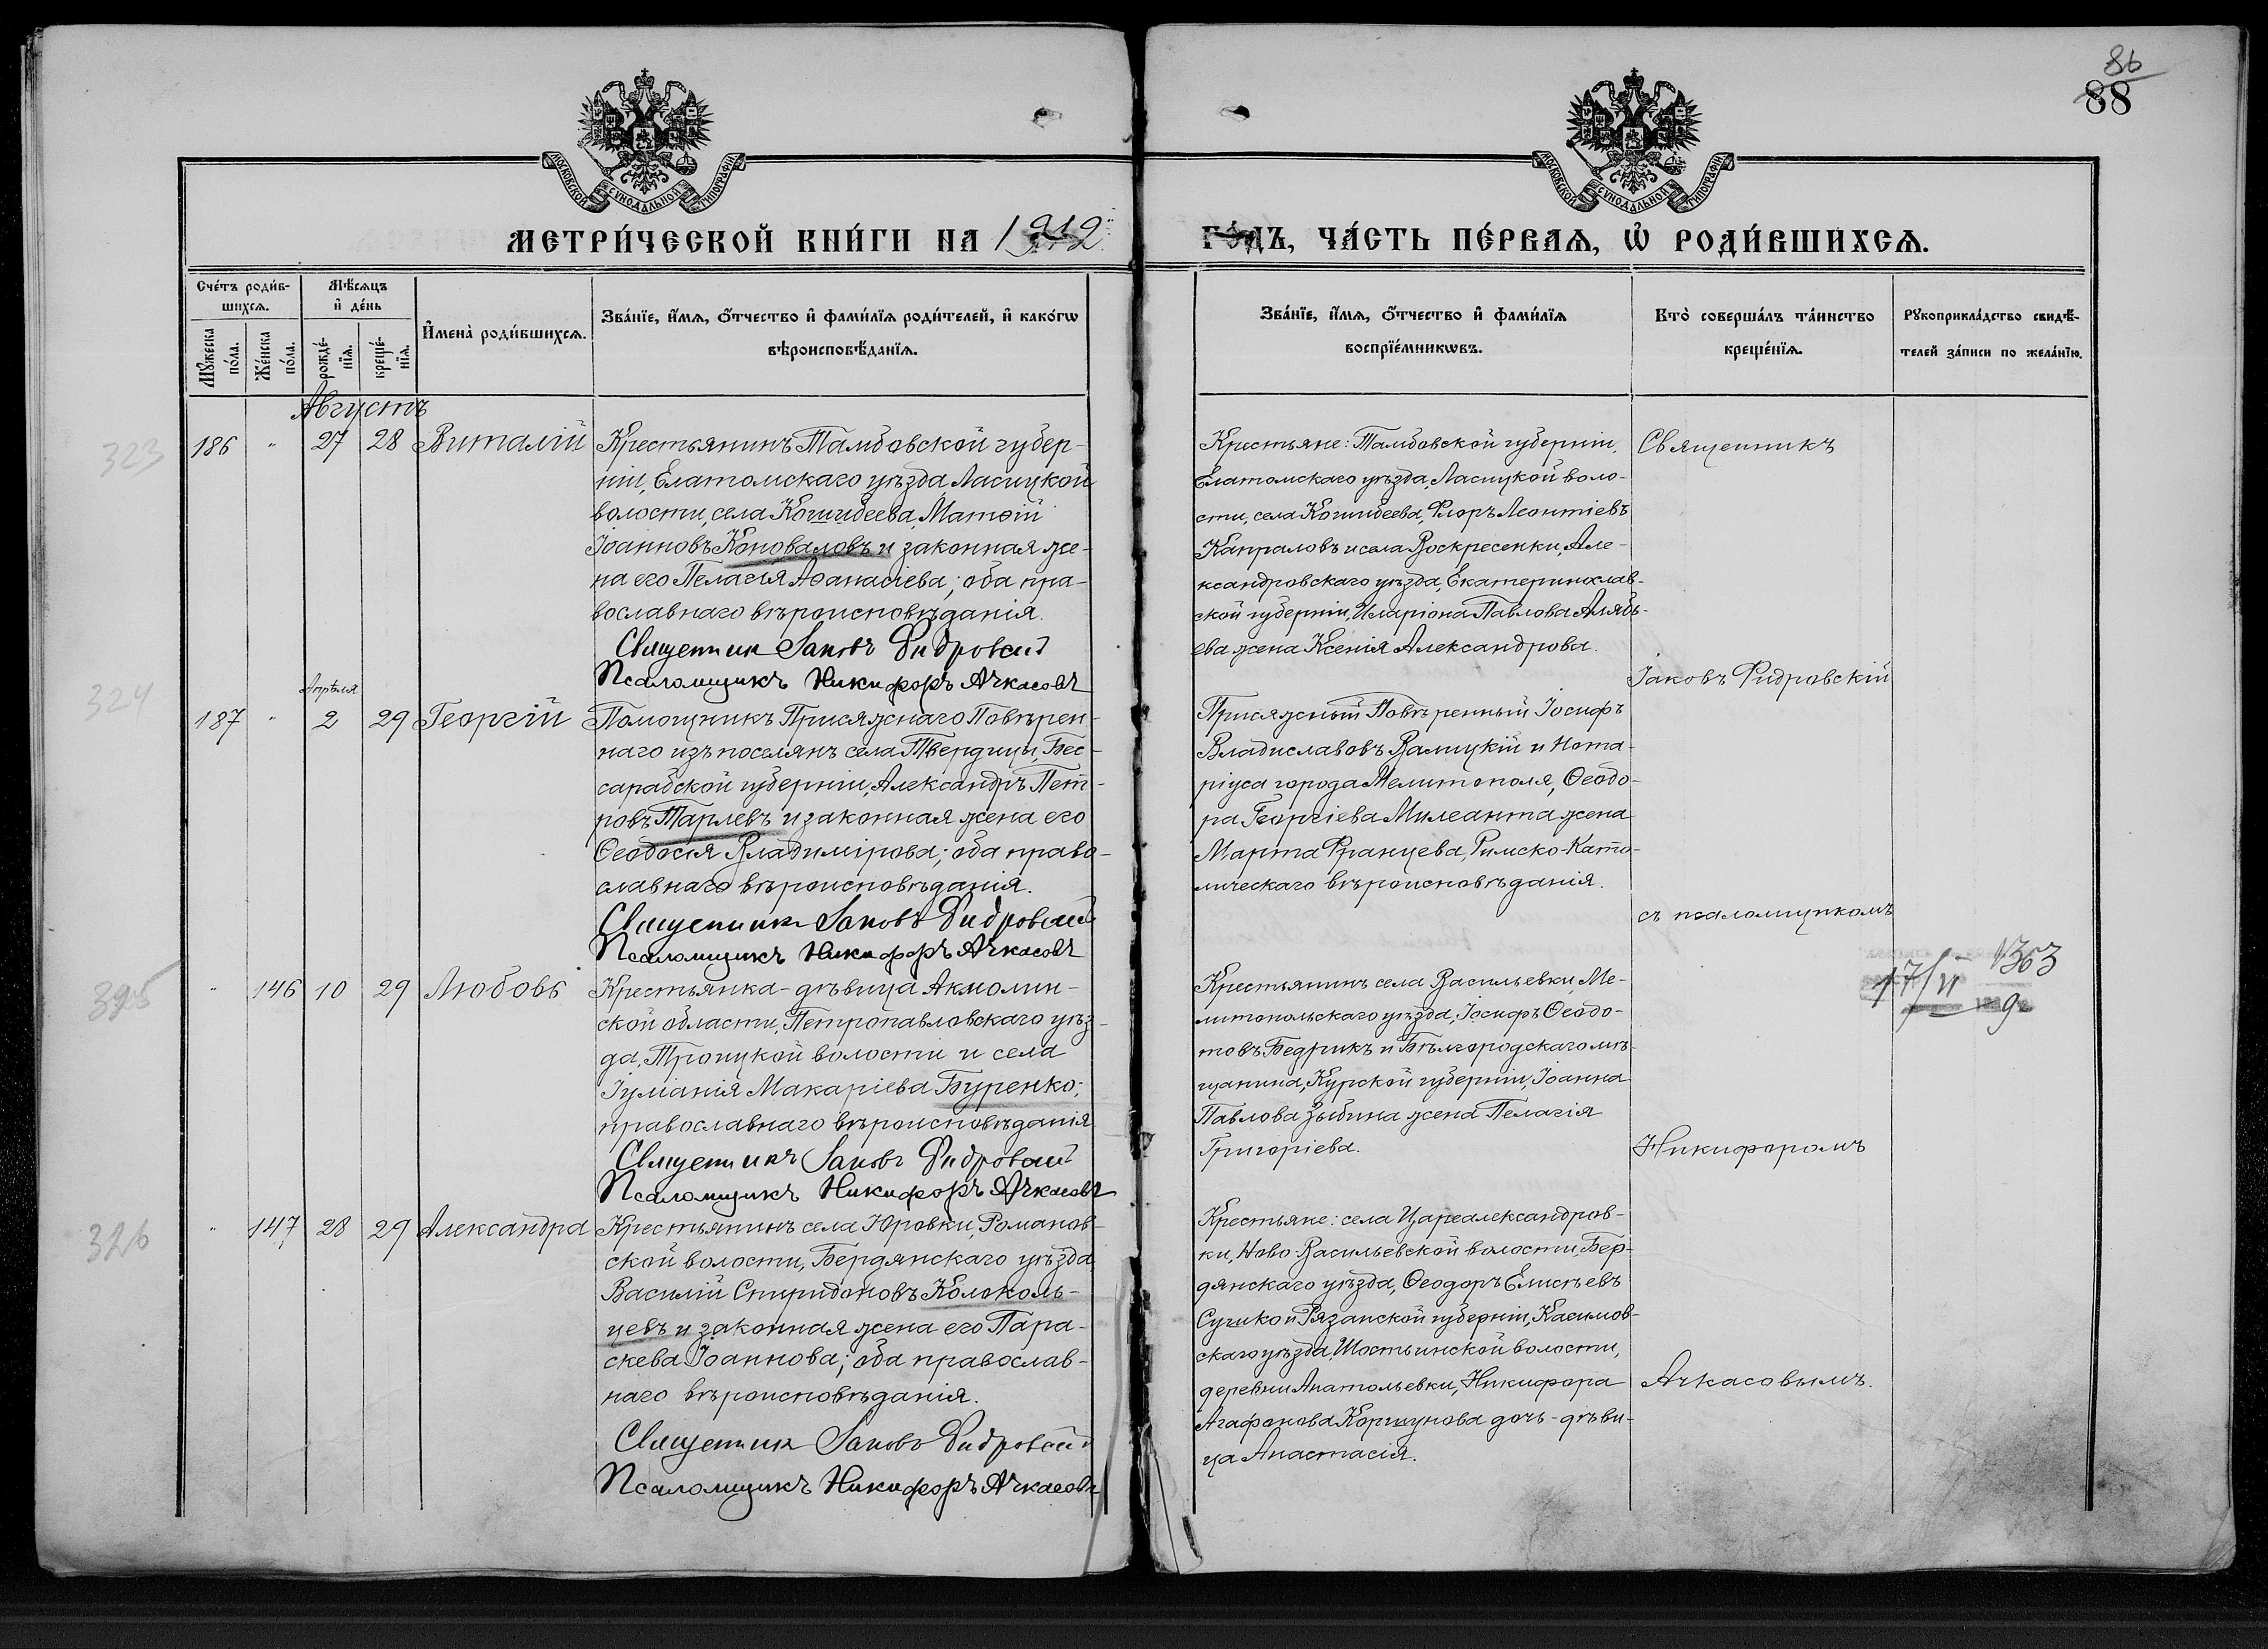 86
88
МОСКОВСКОЙ СѴНОДАЛЬНОЙ ТИПОГРАФІИ
МОСКОВСКОЙ СѴНОДАЛЬНОЙ ТИПОГРАФІИ
МЕТРИ́ЧЕСКОЙ КНИ́ГИ НА 1912
ГО́ДЪ, ЧА́СТЬ ПЕ́РВАѦ, Ѡ҆ РОДИ́ВШИХСѦ.
Сче́тъ роди́в-
шихсѧ.
Мꙋ́жеска
по́ла.
Же́нска
по́ла.
Мѣ́сѧцъ
и҆ де́нь
рожде́-
нїѧ.
креще́-
нїѧ.
И҆мена̀ роди́вшихсѧ.
Зва́нїе, и҆́мѧ, ѻ҆́тчество и҆ фами́лїѧ роди́телей, и҆ како́гѡ
вѣроисповѣ́данїѧ.
Зва́нїе, и҆́мѧ, ѻ҆́тчество и҆ фами́лїѧ
воспрїе́мникѡвъ.
Кто̀ соверша́лъ та́инство
креще́нїѧ.
Рꙋкоприкла́дство свидѣ́-
телей за́писи по жела́нїю.
Августъ
323
186 " 27 28 Виталій
Крестьянинъ Тамбовской губер-
ніи, Елатомскаго уѣзда, Ласицкой
волости, села Кошибеева, Матѳій
Іоанновъ Коноваловъ и законная же-
на его Пелагія Аѳанасіева; оба пра-
вославнаго вѣроисповѣданія.
Священник Іаковъ Фидровскій
Псаломщикъ Никифоръ Ачкасовъ
Крестьяне: Тамбовской губерніи,
Елатомскаго уѣзда, Ласицкой воло-
сти, села Кошибеева, Флоръ Леонтіевъ
Капраловъ и села Воскресенки, Але-
ксандровскаго уѣзда, Екатеринослав-
ской губерніи, Иларіона Павлова Алябь-
ева жена Ксенія Александрова.
Священникъ
Іаковъ Фидровскій
324
Апрѣля
187 " 2 29 Георгій
Помощникъ Присяжнаго Повѣрен-
наго изъ поселянъ села Твердицы, Бес-
сарабской губерніи, Александръ Пет-
ровъ Тарлевъ и законная жена его
Ѳеодосія Владимірова; оба право-
славнаго вѣроисповѣданія.
Священник Іаковъ Фидровскій
Псаломщикъ Никифоръ Ачкасовъ
Присяжный Повѣренный Іосифъ
Владиславовъ Валицкій и Нота-
ріуса города Мелитополя, Ѳеодо-
ра Георгіева Милеанта жена
Марта Францева, Римско-Като-
лическаго вѣроисповѣданія.
съ псаломщикомъ
325
" 146 10 29 Любовь
Крестьянка-дѣвица Акмолин-
ской области, Петропавловскаго уѣз-
да, Троицкой волости и села
Іуліанія Макаріева Буренко;
православнаго вѣроисповѣданія
Священникъ Іаковъ Фидровскій
Псаломщикъ Никифоръ Ачкасовъ
Крестьянинъ села Васильевки, Ме-
литопольскаго уѣзда, Іосифъ Ѳеодо-
товъ Бедрикъ и Бѣлгородскаго мѣ-
щанина, Курской губерніи, Іоанна
Павлова Зыбина жена Пелагія
Григоріева.
Никифоромъ
17/VI 1363
326
" 147 28 29 Александра
Крестьянинъ села Юровки, Романов-
ской волости, Бердянскаго уѣзда
Василій Спиридоновъ Колоколь-
цевъ и законная жена его Пара-
скева Іоаннова; оба православ-
наго вѣроисповѣданія.
Священник Іаковъ Фидровскій
Псаломщикъ Никифоръ Ачкасовъ
Крестьяне: села Цареалександров-
ки, Ново-Васильевской волости, Бер-
дянскаго уѣзда, Ѳеодоръ Елисѣевъ
и Рязанской губерніи, Касимов-
скаго уѣзда, Шостьинской волости,
деревни Анатольевки, Никифора
Агафонова Коршунова дочь-дѣви-
ца Анастасія.
Ачкасовымъ.